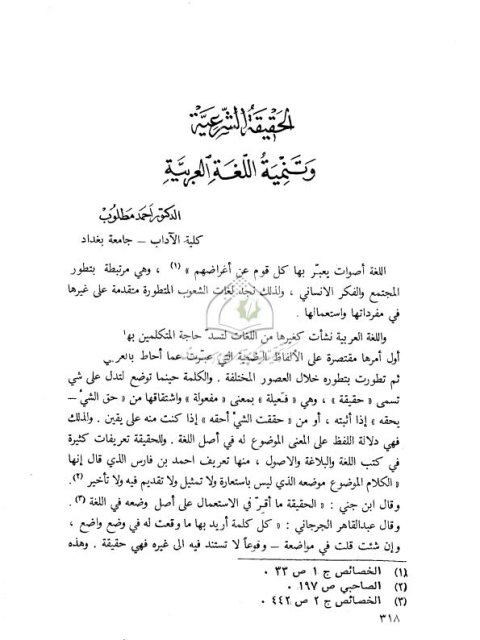 الحقيقة الشرعية
وتنمية اللغة العربية
الدكتور أحمد مطلوب
كلية الآداب – جامعة بغداد
اللغة أصوات يعبر بها كل قوم عن أغراضهم » (١) ، وهي مرتبطة بتطور
المجتمع والفكر الانساني ، ولذلك نجد لغات الشعوب المتطورة متقدمة على غيرها
في مفرداتها واستعمالها .
واللغة العربية نشأت كغيرها من اللغات لتسد حاجة المتكلمين بها
أول أمرها مقتصرة على الألفاظ الوضعية التي عبرت عما أحاط بالعربي
ثم تطورت بتطوره خلال العصور المختلفة . والكلمة حينما توضع لتدل على شي
تسمى « حقيقة » ، وهي « فعيلة » بمعنى « مفعولة » واشتقاقها من « حق الشيء
يحقه » إذا أثبته ، أو من « حققت الشي أحقه » إذا كنت منه على يقين . ولذلك
فهي دلالة اللفظ على المعنى الموضوع له في أصل اللغة . وللحقيقة تعريفات كثيرة
في كتب اللغة والبلاغة والاصول ، منها تعريف احمد بن فارس الذي قال إنها
« الكلام الموضوع موضعه الذي ليس باستعارة ولا تمثيل ولا تقديم فيه ولا تأخير (٢).
وقال ابن جني : « الحقيقة ما أقر في الاستعمال على أصل وضعه في اللغة (٣) .
وقال عبدالقاهر الجرجاني : « كل كلمة أريد بها ما وقعت له في وضع واضع ،
وإن شئت قلت في مواضعة – وقوعاً لا تستند فيه الى غيره فهي حقيقة . وهذه
(١) الخصائص ج ١ ص ٣٣ .
(٢) الصاحبي ص ١٩٧ .
(٣) الخصائص ج ٢ ص ٤٤٢ .
٣١٨